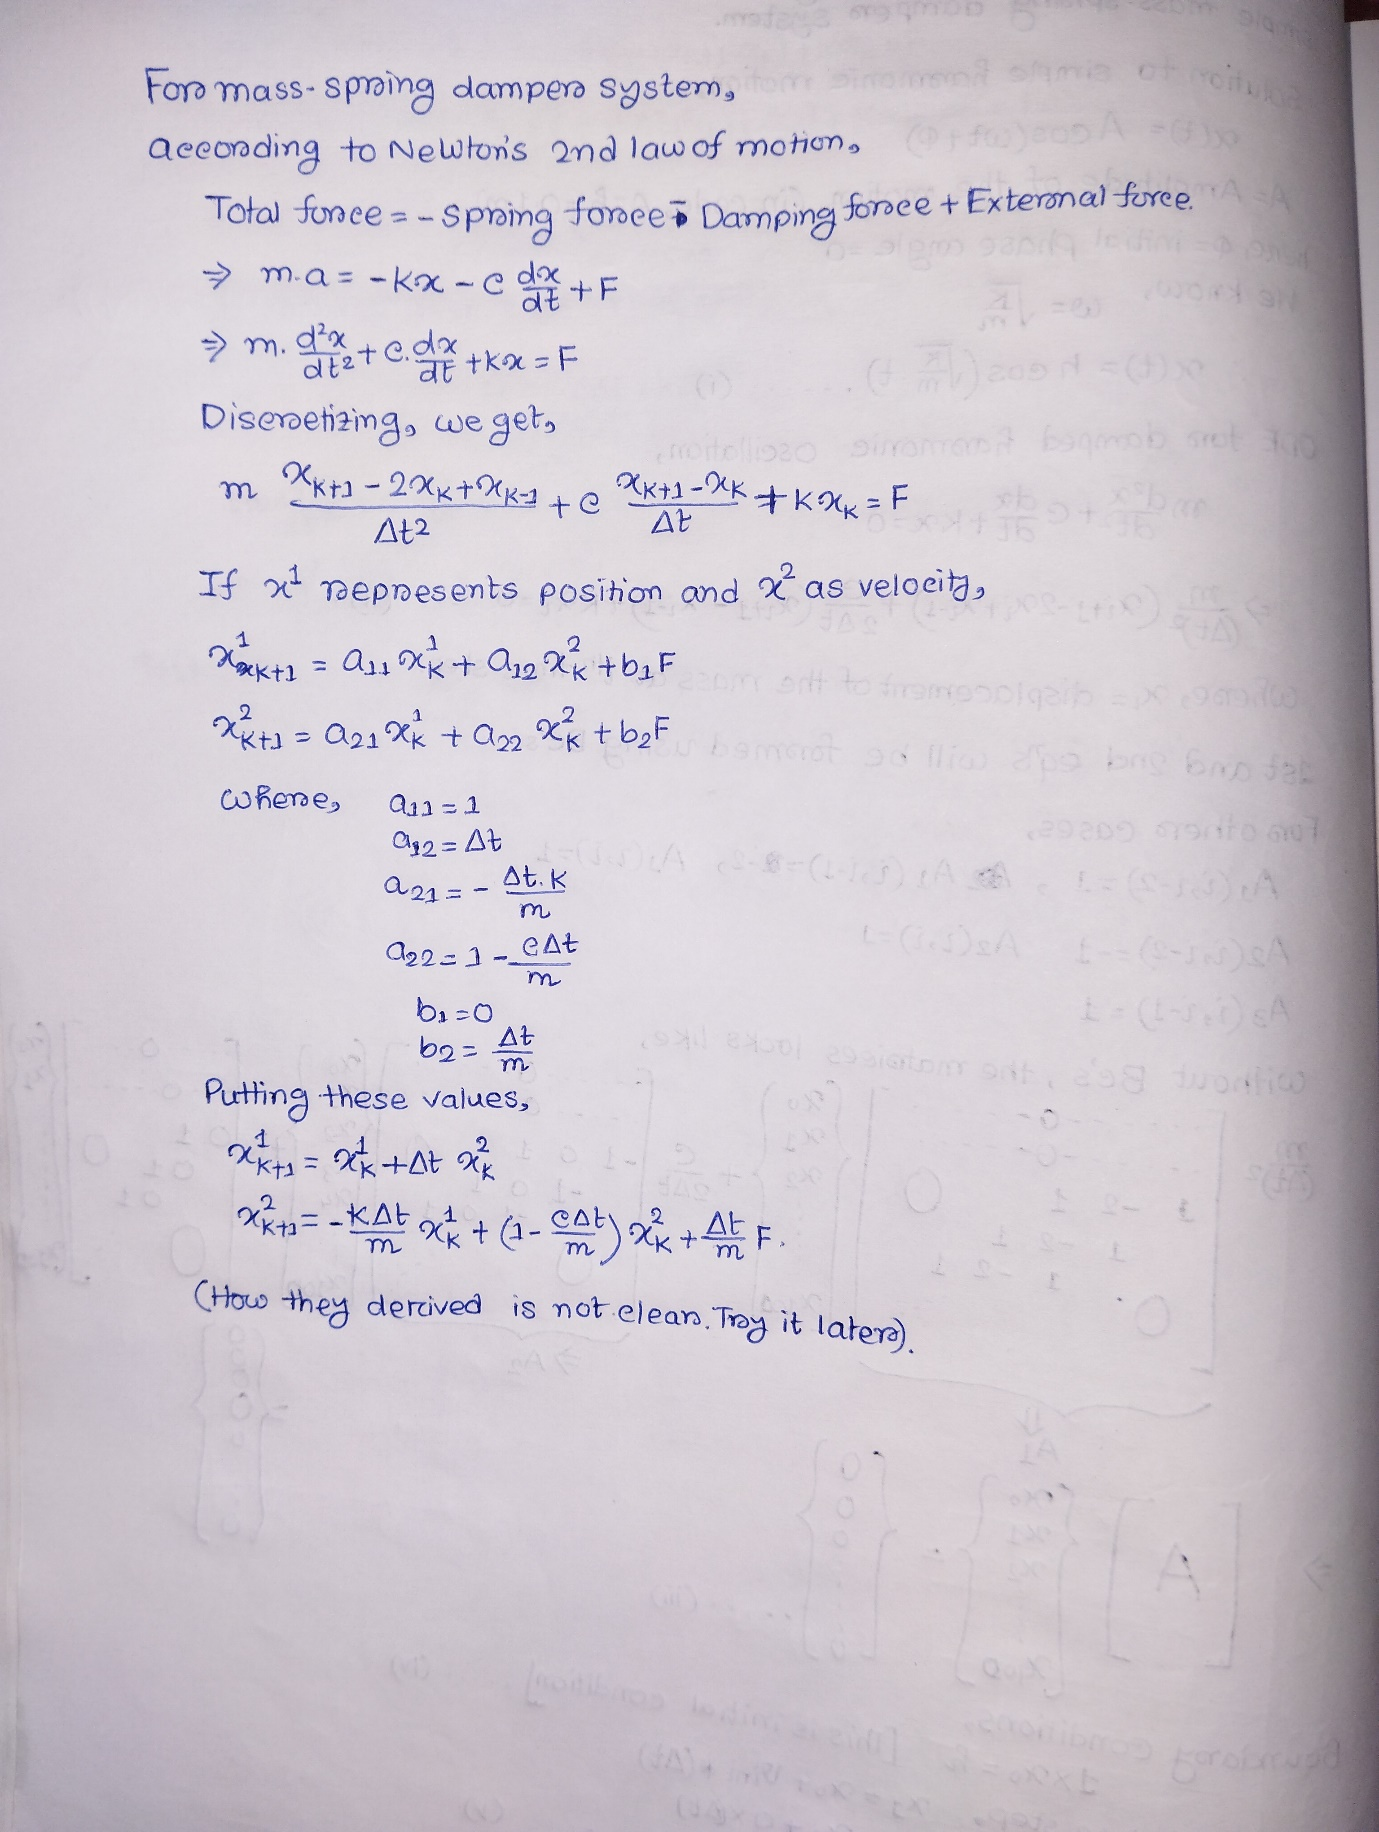 For mass-spring damper system,
according to Newton's 2nd law of motion,
Total force = - spring force - Damping force + External force.
⇒ m.a = -kx - c dx/dt + F
⇒ m. d²x/dt² + c. dx/dt + kx = F
Discretizing, we get,
m (x_{k+1} - 2x_k + x_{k-1})/Δt² + c (x_{k+1} - x_k)/Δt + k x_k = F
If x¹ represents position and x² as velocity,
x¹_{k+1} = a₁₁ x¹_k + a₁₂ x²_k + b₁F
x²_{k+1} = a₂₁ x¹_k + a₂₂ x²_k + b₂F
where, a₁₁ = 1
a₁₂ = Δt
a₂₁ = - Δt.k/m
a₂₂ = 1 - cΔt/m
b₁ = 0
b₂ = Δt/m
Putting these values,
x¹_{k+1} = x¹_k + Δt x²_k
x²_{k+1} = - kΔt/m x¹_k + (1 - cΔt/m) x²_k + Δt/m F.
(How they derived is not clear. Try it later).